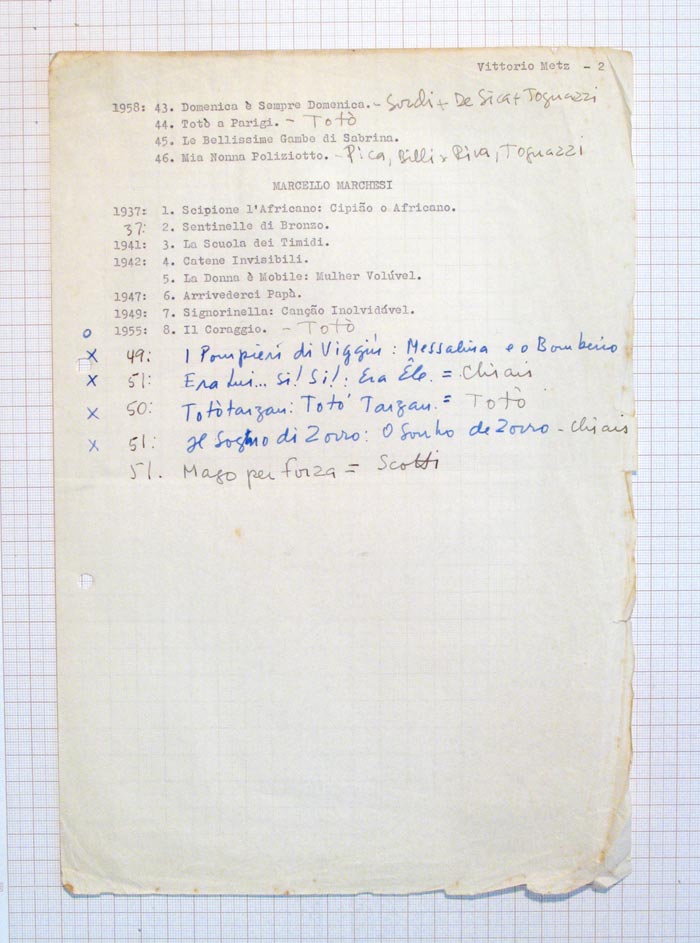 Vittorio Metz - 2
1958: 43. Domenica è Sempre Domenica. - Sordi + De Sica + Tognazzi
44. Totò a Parigi. - Totò
45. Le Bellissime Gambe di Sabrina.
46. Mia Nonna Poliziotto. - Pica, Billi x Riva, Tognazzi
MARCELLO MARCHESI
1937: 1. Scipione l'Africano: Cipião o Africano.
37: 2. Sentinelle di Bronzo.
1941: 3. La Scuola dei Timidi.
1942: 4. Catene Invisibili.
5. La Donna è Mobile: Mulher Volúvel.
1947: 6. Arrivederci Papà.
1949: 7. Signorinella: Canção Inolvidável.
o 1955: 8. Il Coraggio. - Totò
x 49: I Pompieri di Viggiù: Messalina e o Bombeiro
x 51: Era Lui... Si! Si!: Era Êle. = Chiari
x 50: Totòtarzan: Totó Tarzan. = Totò
x 51: Il Sogno di Zorro: O Sonho de Zorro - Chiari
51. Mago per forza = Scotti